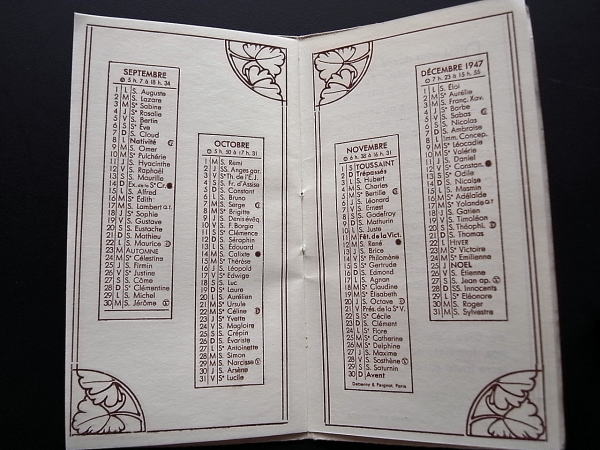 SEPTEMBRE
5 h. 7 à 18 h. 34
1 L S. Auguste
2 M S. Lazare
3 M Sᵉ Sabine
4 J Sᵉ Rosalie
5 V S. Bertin
6 S Sᵉ Ève
7 D S. Cloud
8 L Nativité
9 M S. Omer
10 M Sᵉ Pulchérie
11 J S. Hyacinthe
12 V S. Raphaël
13 S S. Maurille
14 D Ex. de la Sᵉ Cr.
15 L S. Alfred
16 M Sᵉ Edith
17 M S. Lambert Q.T.
18 J Sᵉ Sophie
19 V S. Gustave
20 S S. Eustache
21 D S. Mathieu
22 L S. Maurice
23 M AUTOMNE
24 M Sᵉ Célestina
25 J S. Firmin
26 V Sᵉ Justine
27 S S. Côme
28 D Sᵉ Clémentine
29 L S. Michel
30 M S. Jérôme
OCTOBRE
5 h. 50 à 17 h. 31
1 M S. Remi
2 J SS. Anges gar.
3 V Sᵉ Th. de l'E.J.
4 S S. Fr. d'Assise
5 D S. Constant
6 L S. Bruno
7 M S. Serge
8 M Sᵉ Brigitte
9 J S. Denis évêq.
10 V S. F. Borgia
11 S Sᵉ Clémence
12 D S. Séraphin
13 L S. Edouard
14 M S. Calixte
15 M Sᵉ Thérèse
16 J S. Léopold
17 V Sᵉ Edwige
18 S S. Luc
19 D Sᵉ Laure
20 L S. Aurélien
21 M Sᵉ Ursule
22 M Sᵉ Céline
23 J Sᵉ Yvette
24 V S. Magloire
25 S S. Crépin
26 D S. Evariste
27 L Sᵉ Antoinette
28 M S. Simon
29 M S. Narcisse
30 J S. Arsène
31 V Sᵉ Lucile
NOVEMBRE
6 h. 38 à 16 h. 31
1 S TOUSSAINT
2 D Trépassés
3 L S. Hubert
4 M S. Charles
5 M Sᵉ Bertille
6 J S. Léonard
7 V S. Ernest
8 S S. Godefroy
9 D S. Mathurin
10 L S. Juste
11 M Fêt. de la Vict.
12 M S. René
13 J S. Brice
14 V Sᵉ Philomène
15 S Sᵉ Gertrude
16 D S. Edmond
17 L S. Agnan
18 M Sᵉ Claudine
19 M Sᵉ Elisabeth
20 J S. Octave
21 V Prés. de la Sᵉ V.
22 S Sᵉ Cécile
23 D S. Clément
24 L Sᵉ Flore
25 M Sᵉ Catherine
26 M Sᵉ Delphine
27 J S. Maxime
28 V S. Sosthène
29 S S. Saturnin
30 D Avent
Deberny & Peignot, Paris
DÉCEMBRE 1947
7 h. 23 à 15 h. 55
1 L S. Éloi
2 M Sᵉ Aurélie
3 M S. Franç. Xav.
4 J Sᵉ Barbe
5 V S. Sabas
6 S S. Nicolas
7 D S. Ambroise
8 L Imm. Concep.
9 M Sᵉ Léocadie
10 M Sᵉ Valérie
11 J S. Daniel
12 V S. Constan.
13 S Sᵉ Odile
14 D S. Nicaise
15 L S. Mesmin
16 M Sᵉ Adélaïde
17 M Sᵉ Yolande Q.T.
18 J S. Gatien
19 V S. Timoléon
20 S S. Théophi.
21 D S. Thomas
22 L HIVER
23 M Sᵉ Victoire
24 M Sᵉ Emilienne
25 J NOËL
26 V S. Étienne
27 S S. Jean ap.
28 D SS. Innocents
29 L Sᵉ Eléonore
30 M S. Roger
31 M S. Sylvestre